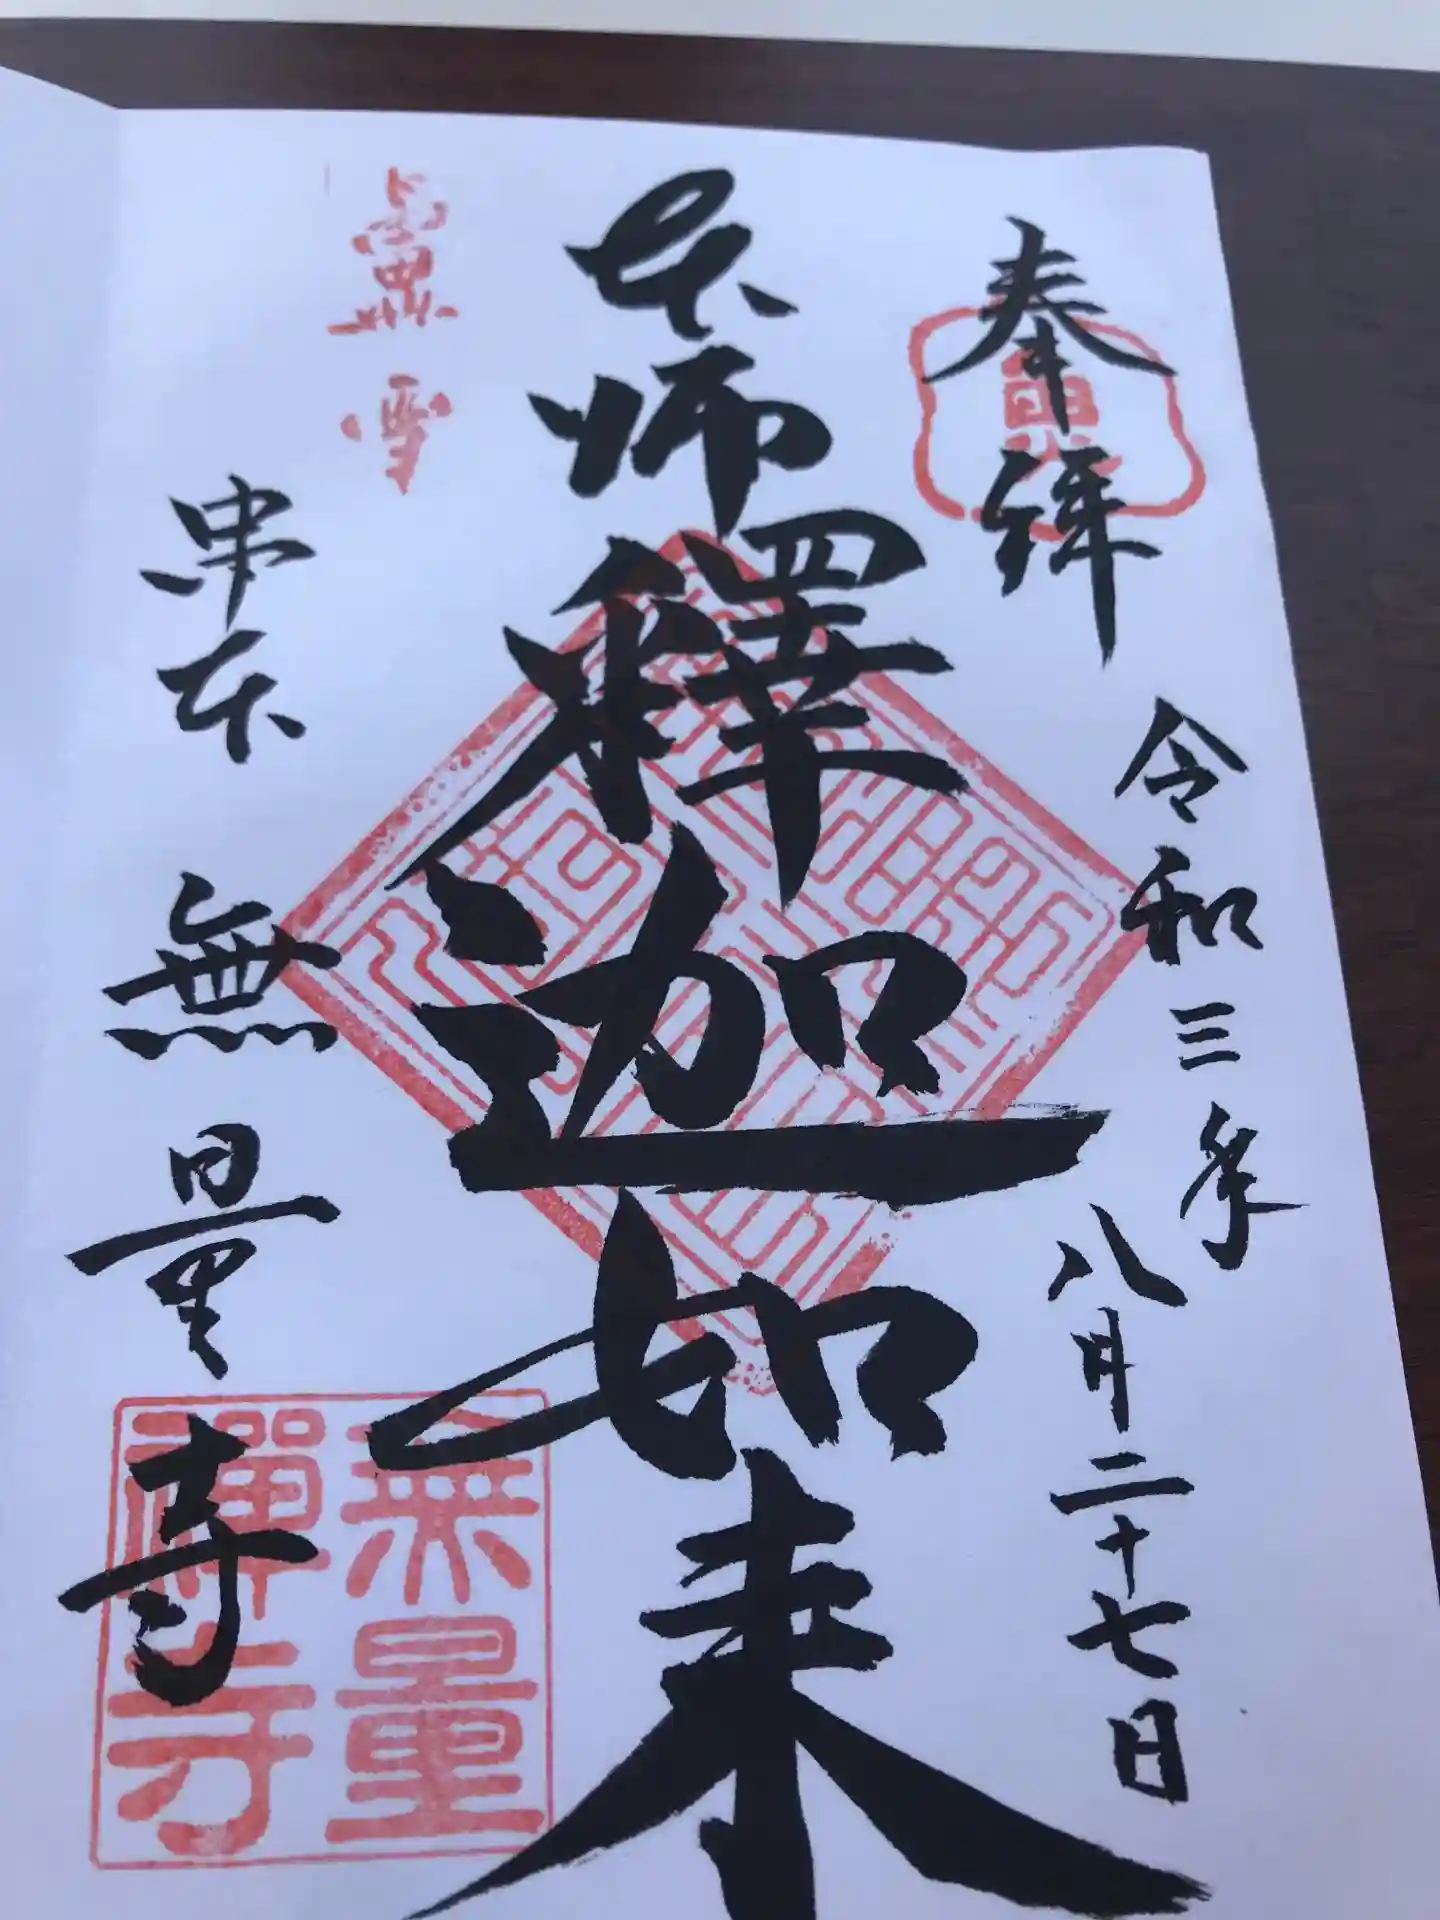 奉拝
令和三年
八月二十七日
本師釋迦如来
串本
無量寺
無量
禪寺